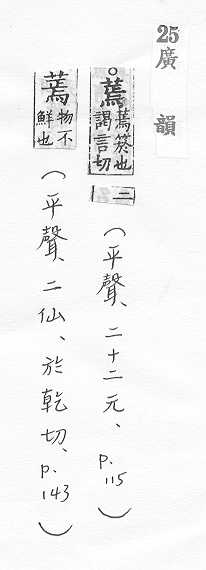 25廣韻
○蔫蔫菸也謁言切二(平聲、二十二元、p.115)
蔫物不鮮也(平聲、二仙、於乾切、p.143)